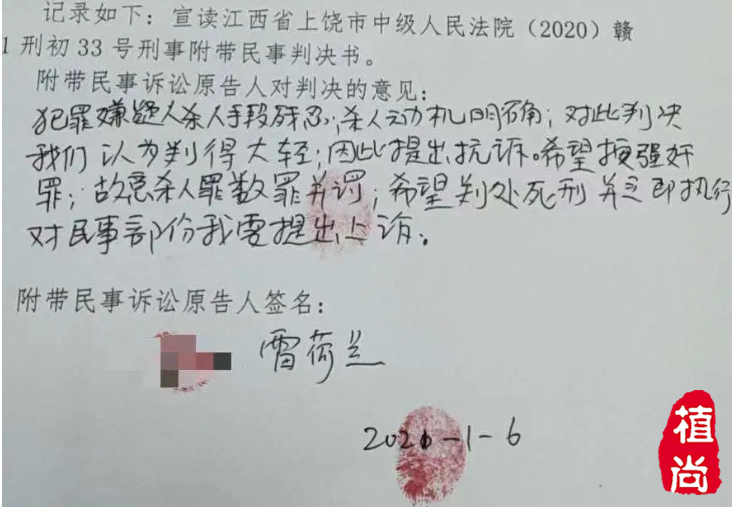 记录如下：宣读江西省上饶市中级人民法院（2020）赣
1刑初33号刑事附带民事判决书。
附带民事诉讼原告人对判决的意见：
犯罪嫌疑人杀人手段残忍，杀人动机明确；对此判决
我们认为判得太轻；因此提出抗诉。希望按强奸
罪；故意杀人罪数罪并罚；希望判处死刑并立即执行
对民事部份我要提出上诉。
附带民事诉讼原告人签名：
雷荷兰
2021-1-6
植尚